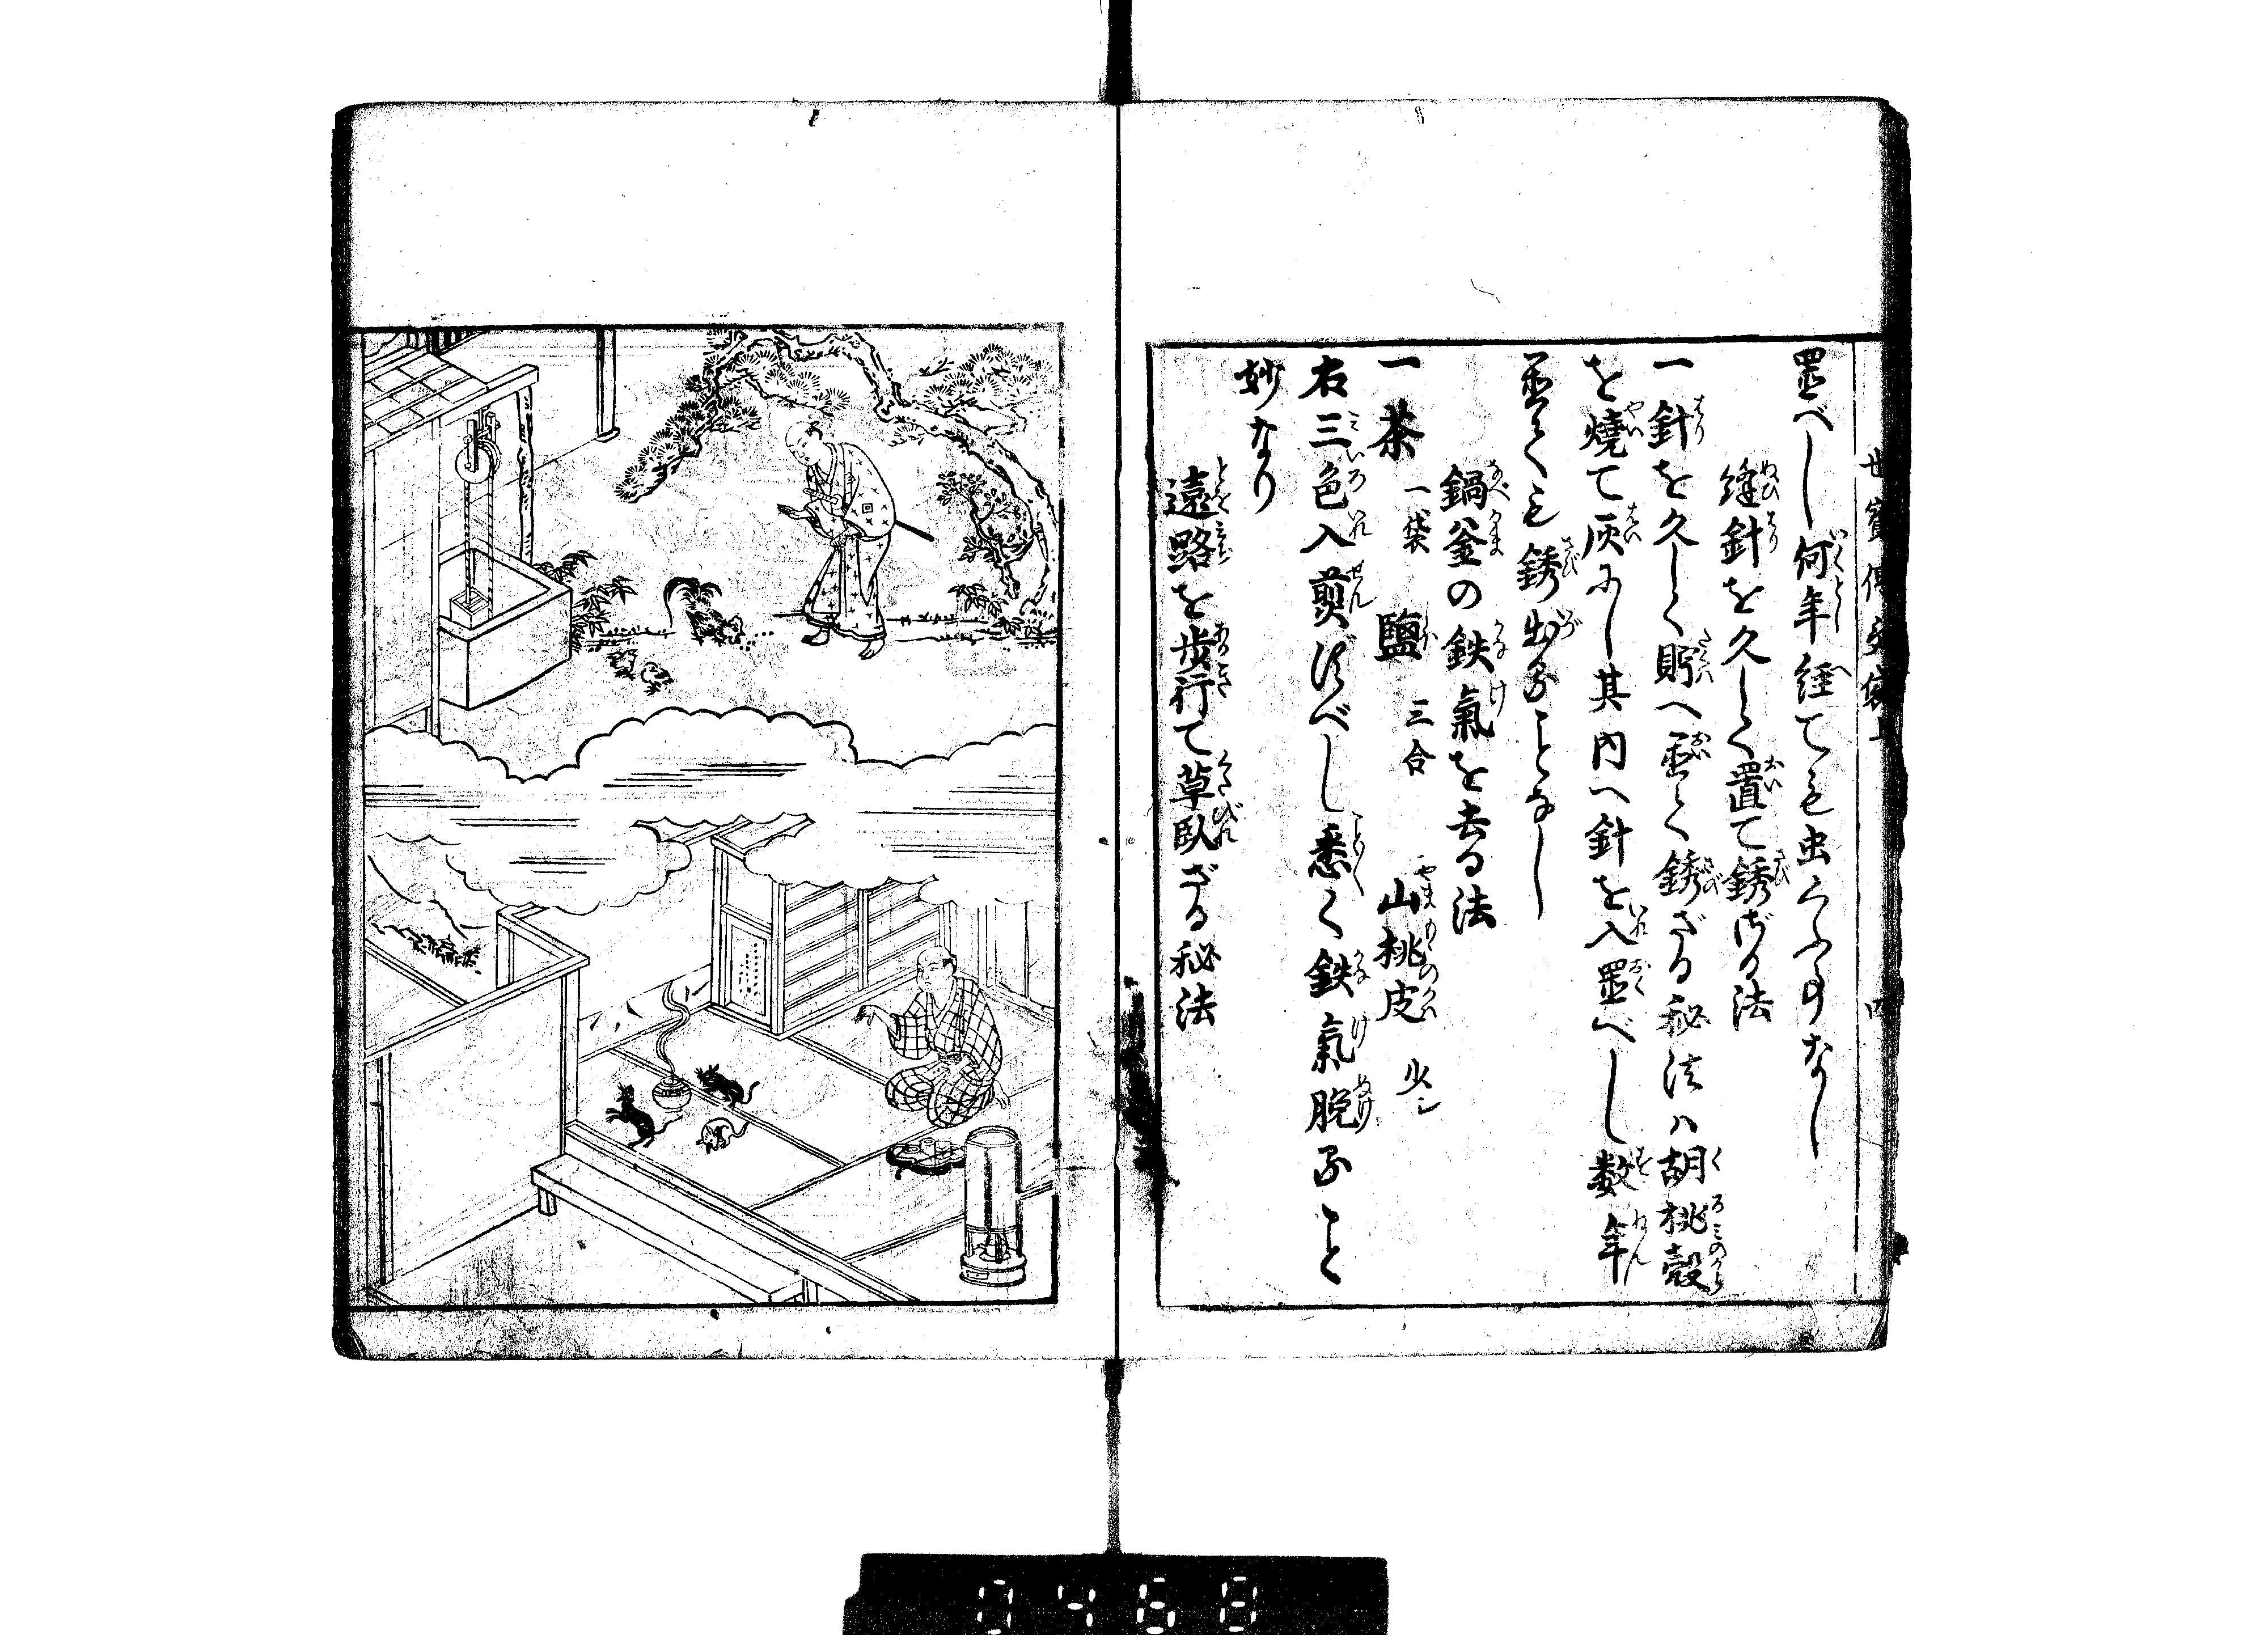 置べし何年経ても虫くふ事なし
縫針を久しく置て銹ざる法
一針を久しく貯へ置て銹ざる秘法ハ胡桃殻
を焼て灰にし其内へ針を入置べし数年
置ても銹出ることなし
鍋釜の鉄氣を去る法
一茶 一袋 鹽 三合 山桃皮 少シ
右三色入煎ずべし悉く鉄氣脱ること
妙なり
遠路を歩行て草臥ざる秘法